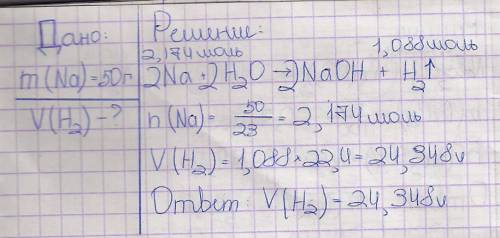 Дано:
Решение:
2,174моль 1,088моль
m(Na)=50г
2Na+2H₂O→2NaOH + H₂↑
V(H₂)-?
n(Na)= 50/23 = 2,174моль
V(H₂)=1,088*22,4=24,348л
Ответ: V(H₂)=24,348л